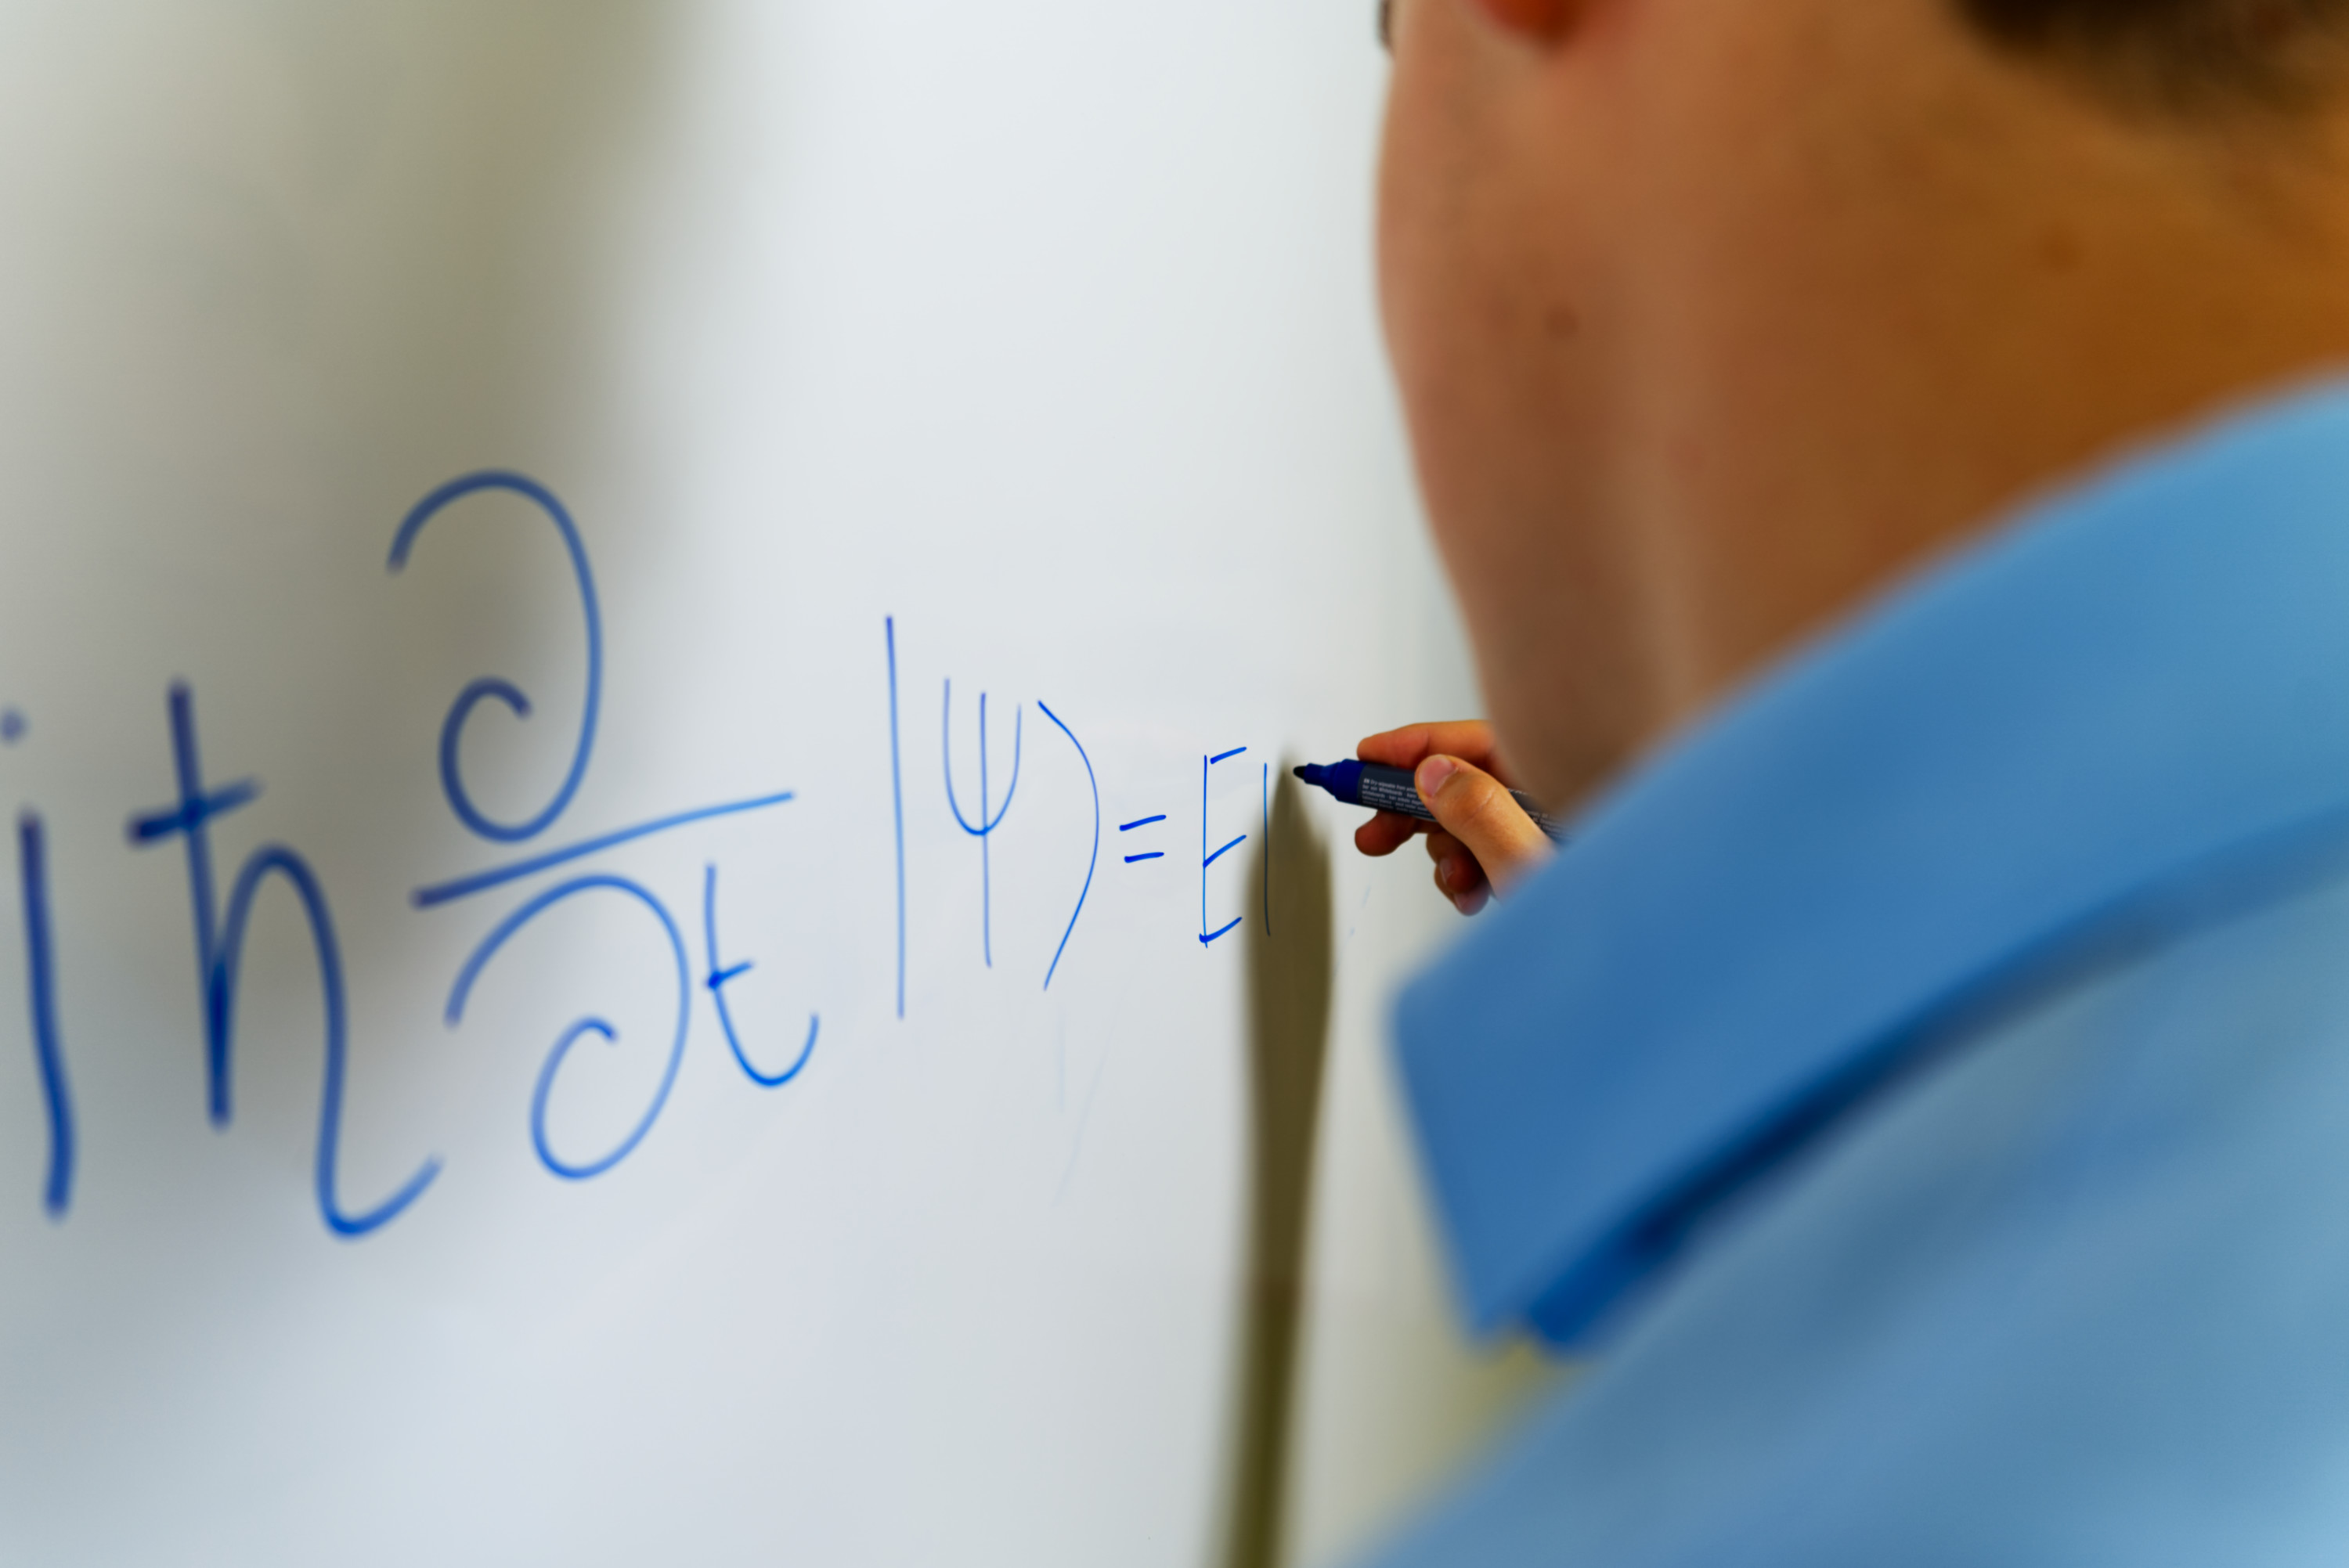 iħ ∂/∂t |ψ) = E|